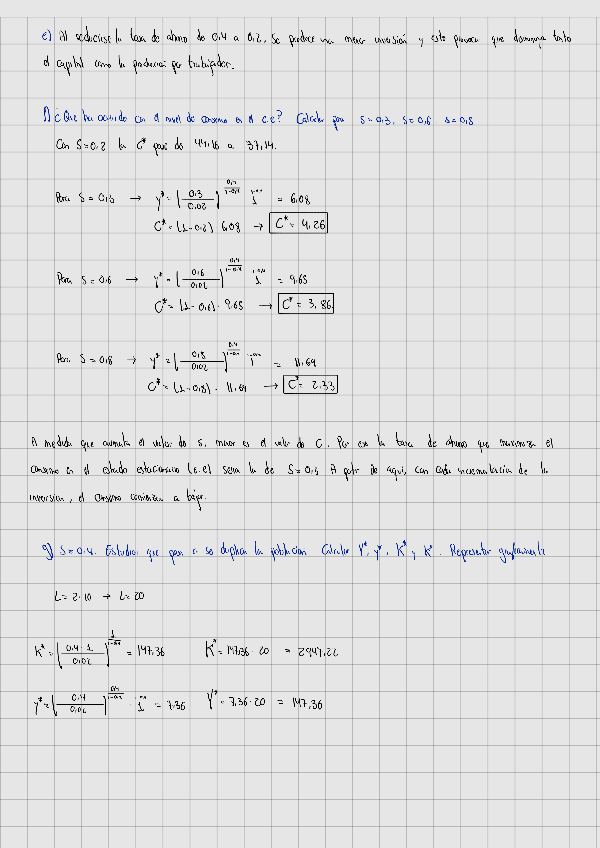 e) Al reducirse la tasa de ahorro de 0,4 a 0,2, se produce una menor inversión y esto provoca que disminuya tanto
el capital como la producción por trabajador.
f) ¿Que ha ocurrido con el nivel de consumo en el e.e? Calcular para s=0,3, s=0,6 s=0,8
Con s=0,2 la C* pasó de 44,16 a 37,14.
Para s = 0,3 → y* = (0,3/0,02)^(0,4/1-0,4) · 1^(1-0,4) = 6,08
C* = (1-0,3) 6,08 → C* = 4,26
Para s = 0,6 → y* = (0,6/0,02)^(0,4/1-0,4) · 1^(1-0,4) = 9,65
C* = (1-0,6) · 9,65 → C* = 3,86
Para s = 0,8 → y* = (0,8/0,02)^(0,4/1-0,4) · 1 = 11,69
C* = (1-0,8) · 11,69 → C* = 2,33
A medida que aumenta el valor de s, menor es el valor de C. Por eso la tasa de ahorro que maximiza el
consumo en el estado estacionario (e.e) sería la de s=0,4 A partir de aquí, con cada incrementación de la
inversión, el consumo comienza a bajar.
g) s=0,4. Estudiar que pasa si se duplica la población Calcular Y*, y*, K* y k*. Representar gráficamente
L= 2·10 → L=20
k* = (0,4·1/0,02)^(1/1-0,4) = 147,36 K* = 147,36 · 20 = 2947,22
y* = (0,4/0,02)^(0,4/1-0,4) · 1 = 7,36 Y* = 7,36·20 = 147,36